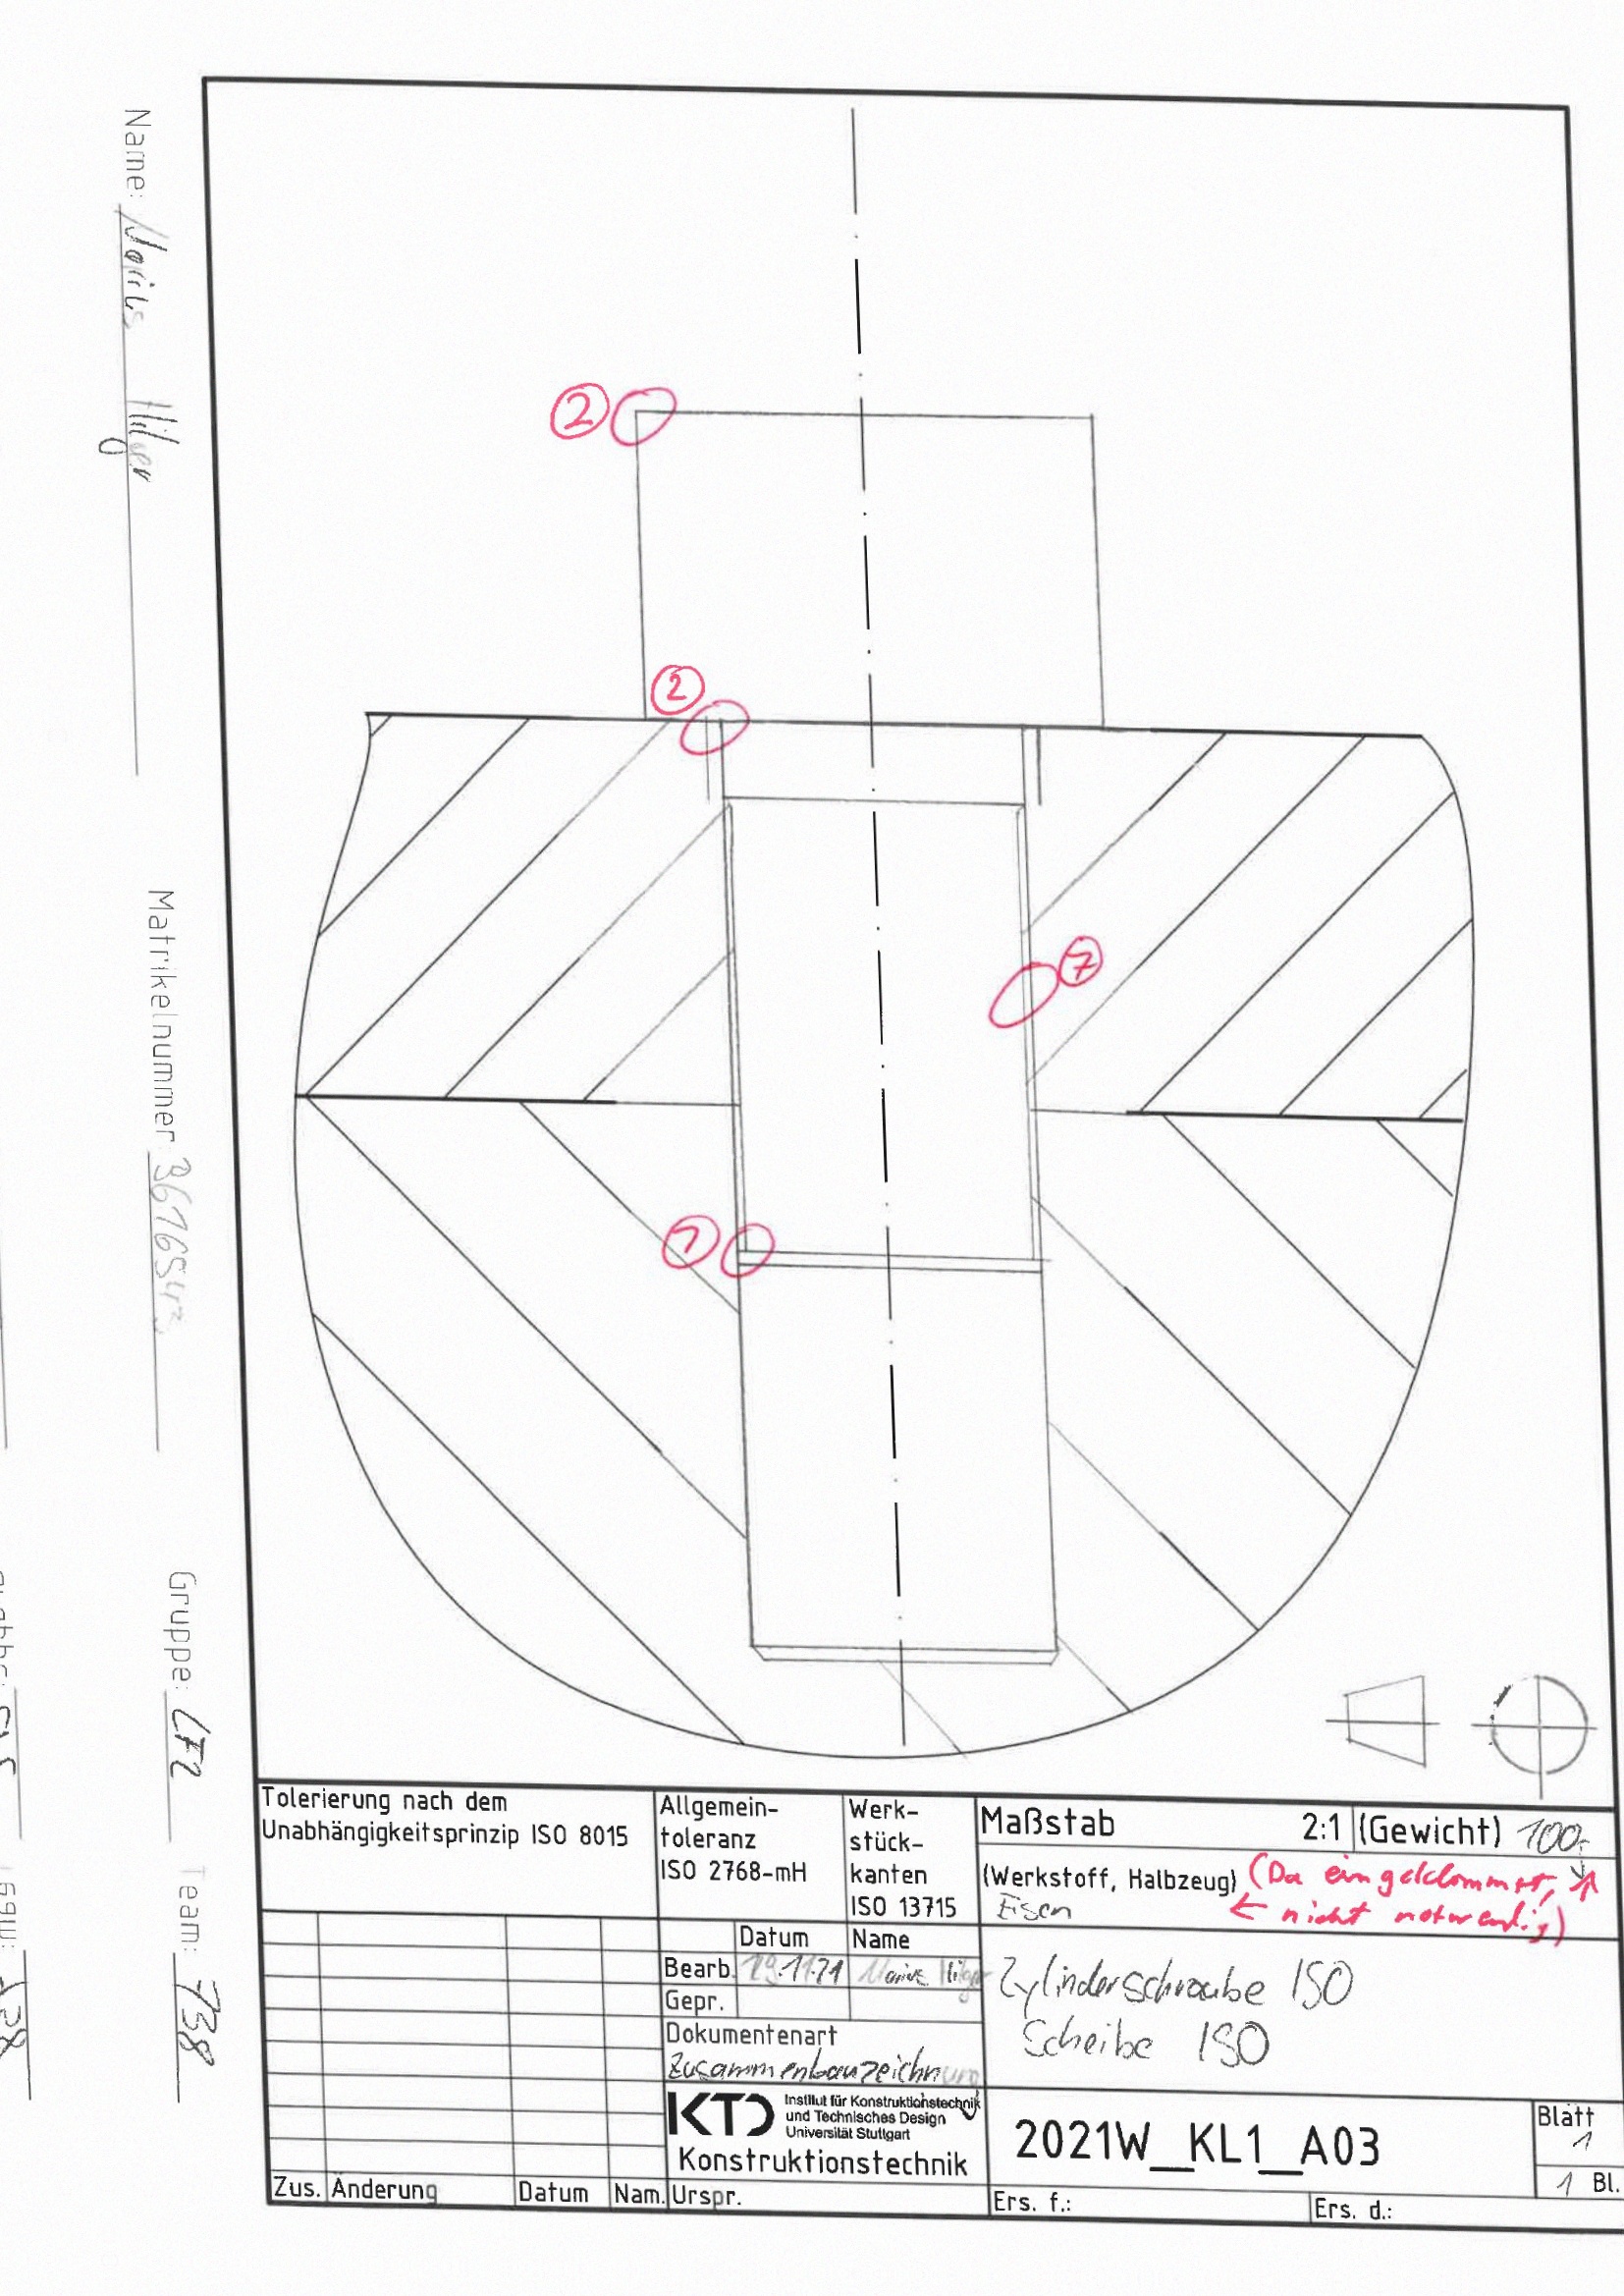 Name:
Matrikelnummer:
Gruppe: CF2
Team: 738
2
2
7
1
Tolerierung nach dem
Unabhängigkeitsprinzip ISO 8015
Allgemein-
toleranz
ISO 2768-mH
Werk-
stück-
kanten
ISO 13715
Maßstab 2:1 (Gewicht) 100
(Werkstoff, Halbzeug) (Da eingeklammert,
Eisen nicht notwendig)
Datum Name
Bearb.
Gepr.
Dokumentenart
Zusammenbauzeichnung
Zylinderschraube ISO
Scheibe ISO
KTD Institut für Konstruktionstechnik
und Technisches Design
Universität Stuttgart
Konstruktionstechnik
2021W_KL1_A03
Blatt
1
1 Bl.
Zus. Änderung Datum Nam. Urspr. Ers. f.: Ers. d.: